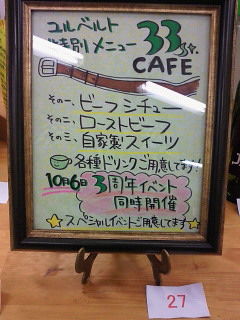 ユルベルト
特別メニュー 33
CAFE
その一、ビーフシチュー
その二、ローストビーフ
その三、自家製スイーツ
各種ドリンクご用意してます!
10月6日 3周年イベント
同時開催
スペシャルイベントご用意してます
27